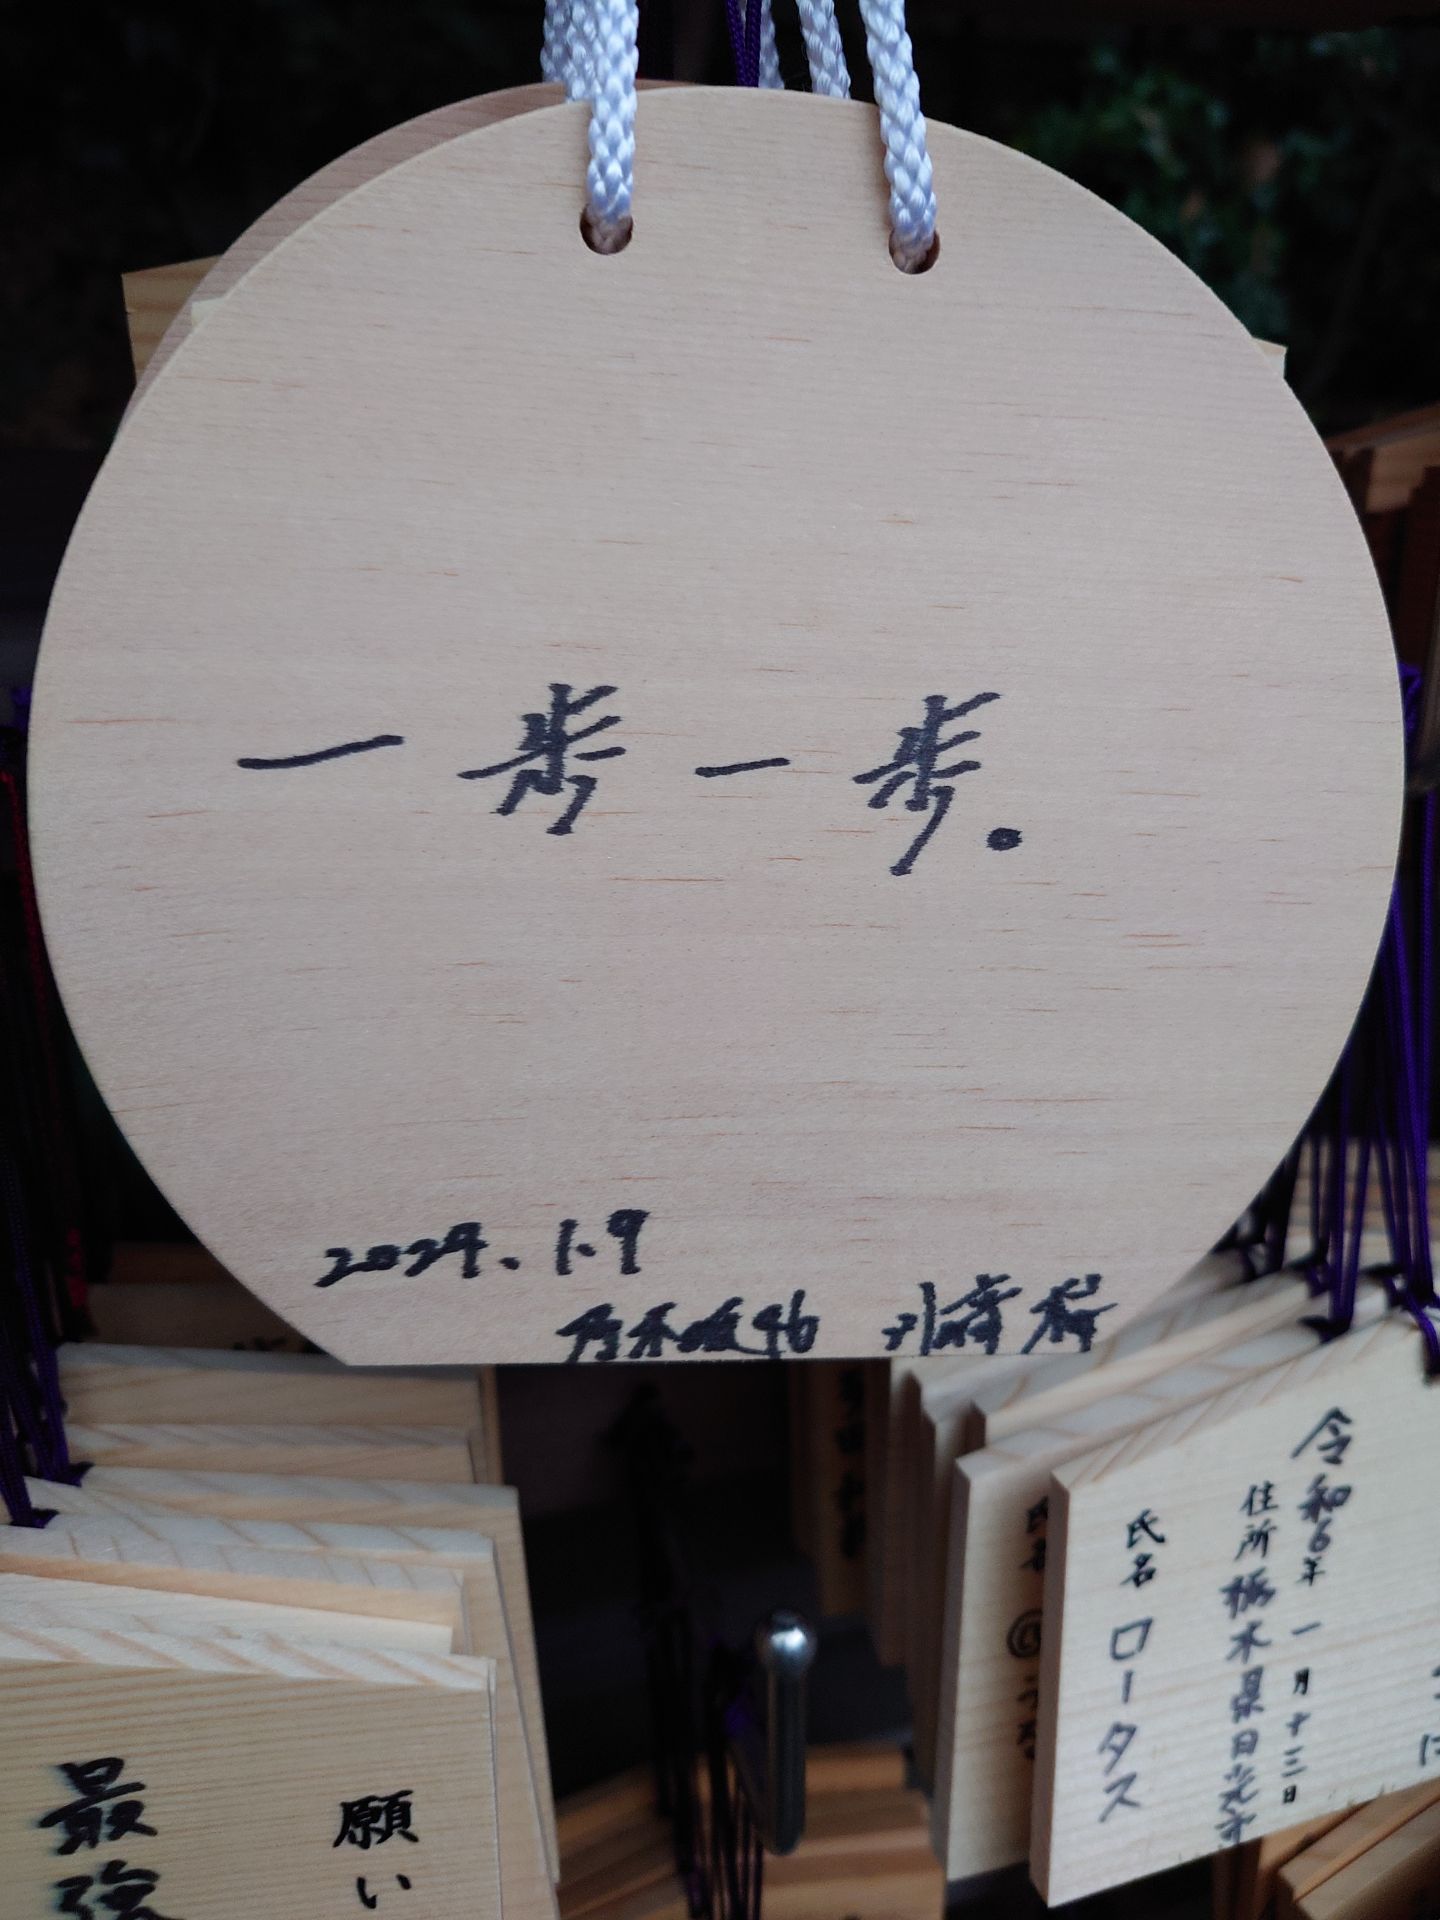 一歩一歩.
2024.1.9
乃木坂46 川﨑桜
最強
願い
令和6年一月十三日
住所 栃木県日光市
氏名 ロータス